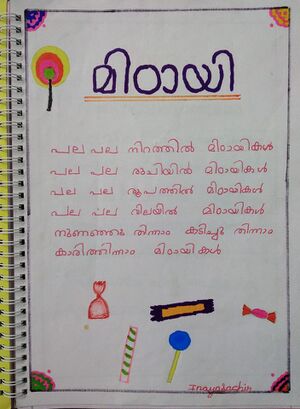 മിഠായി
പല പല നിറത്തിൽ മിഠായികൾ
പല പല രുചിയിൽ മിഠായികൾ
പല പല രൂപത്തിൽ മിഠായികൾ
പല പല വിലയിൽ മിഠായികൾ
നുണഞ്ഞു തിന്നാം കടിച്ചു തിന്നാം
കാരിത്തിന്നാം മിഠായികൾ